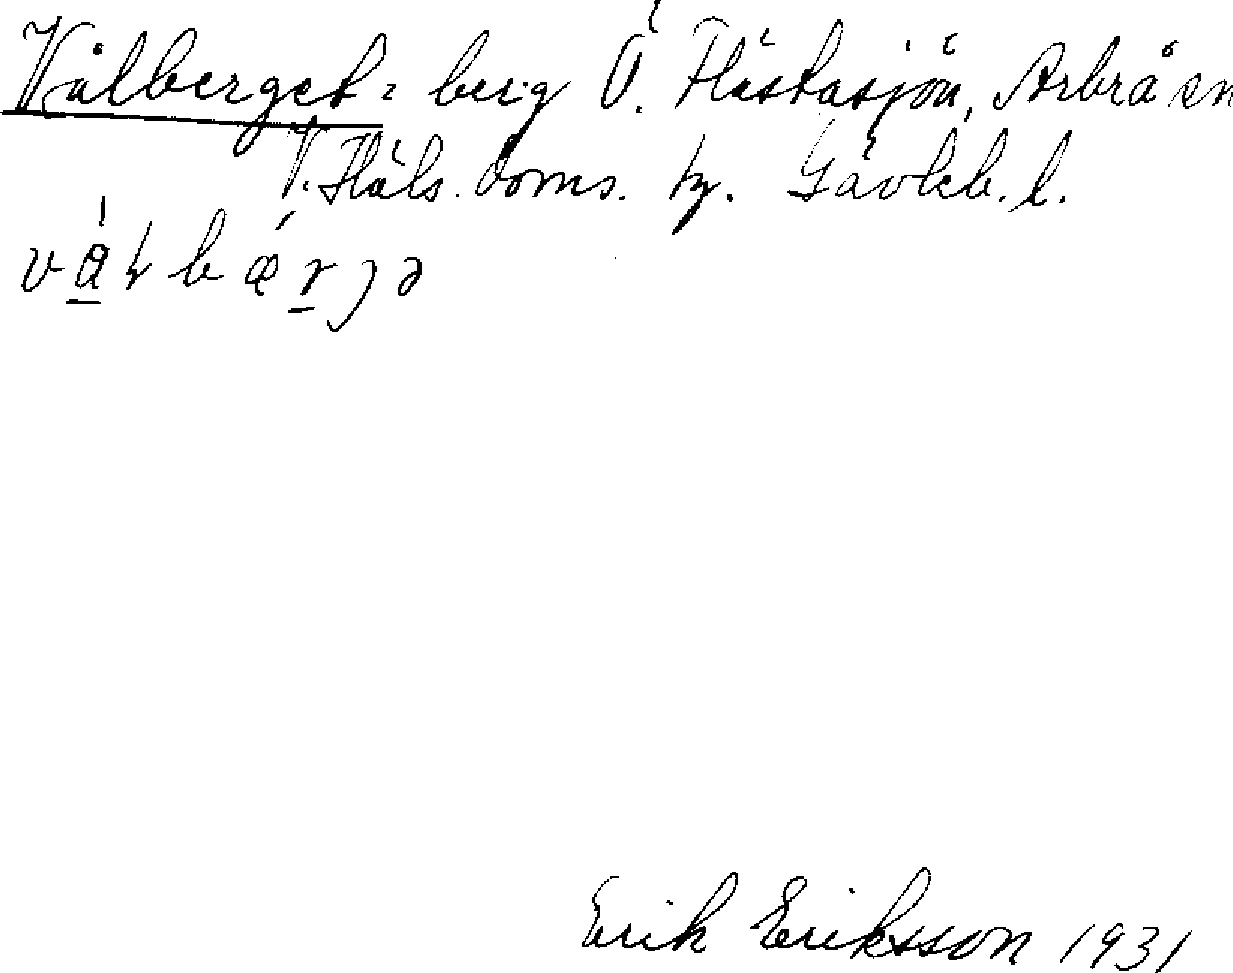 Vålberget: berg Ö. Flästasjön, Arbrå sn
V. Häls. doms. hg. Gävleb. l.
Erik Eriksson 1931